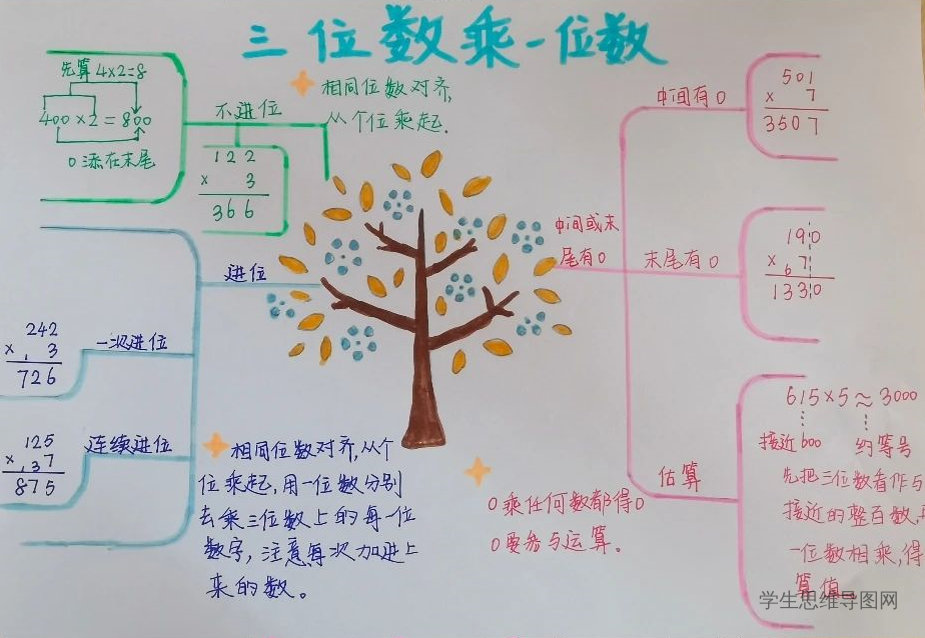 三位数乘一位数
先算4×2=8
400×2=800
0添在末尾
不进位
122
× 3
366
相同位数对齐,
从个位乘起.
进位
一次进位
242
× 3
726
连续进位
125
×,37
875
相同位数对齐,从个
位乘起,用一位数分别
去乘三位数上的每一位
数字,注意每次加进上
来的数。
中间或末
尾有0
中间有0
501
× 7
3507
末尾有0
190
× 7
6
1330
估算
615×5≈3000
接近600 约等号
先把三位数看作与
接近的整百数,
一位数相乘,得
算值。
0乘任何数都得0
0要参与运算。
学生思维导图网